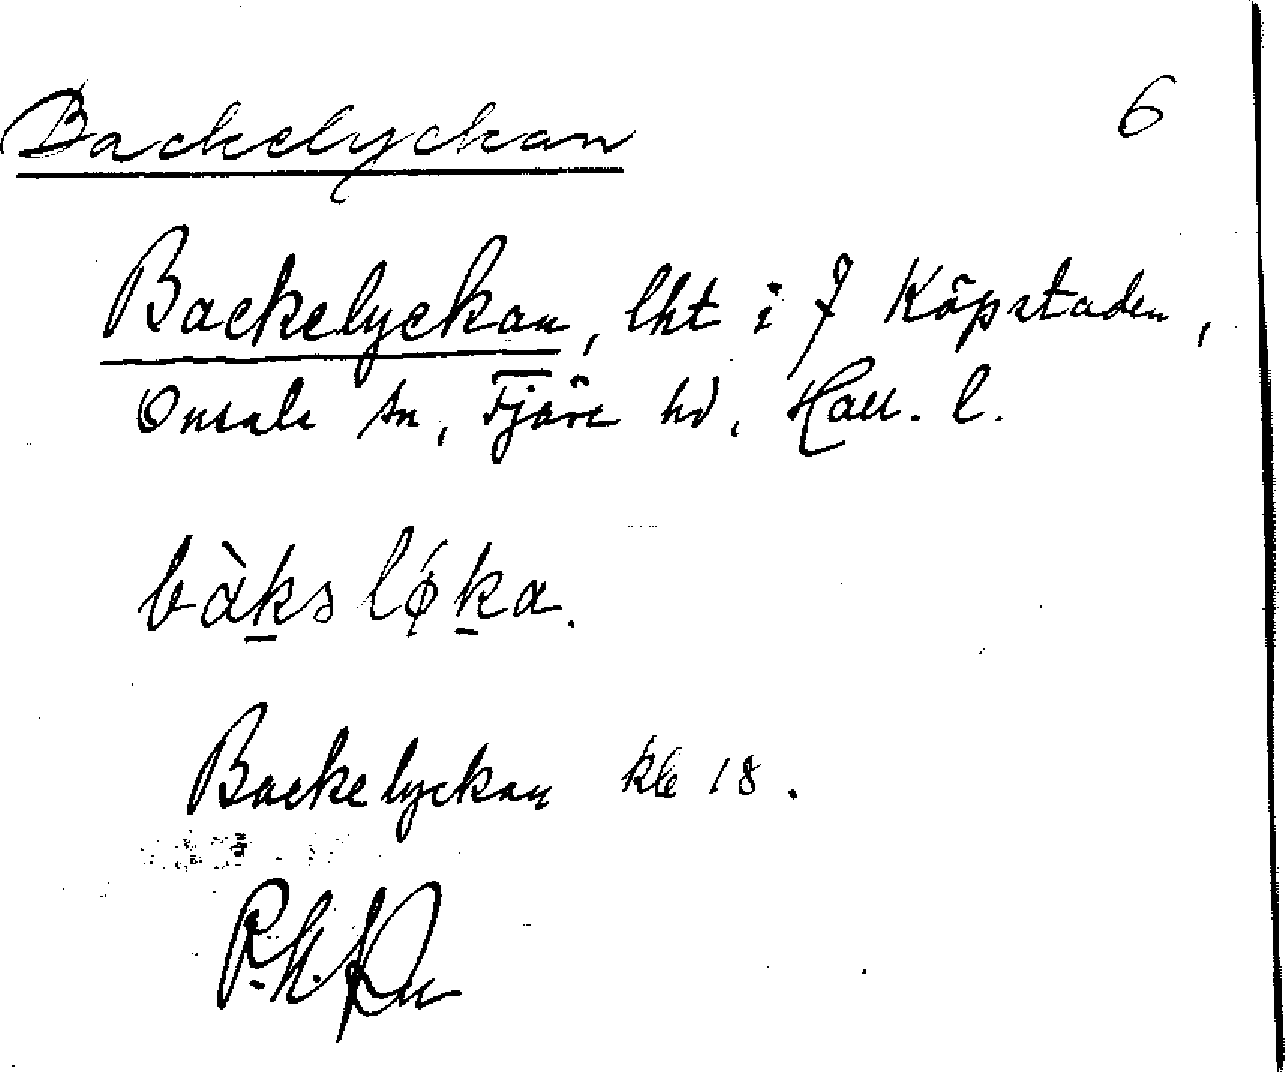 Backelyckan 6
Backelyckan, lht i 7 Köpstaden,
Onsala sn, Fjäre hd, Hall. l.
bàksløka.
Backelyckan kle 18.